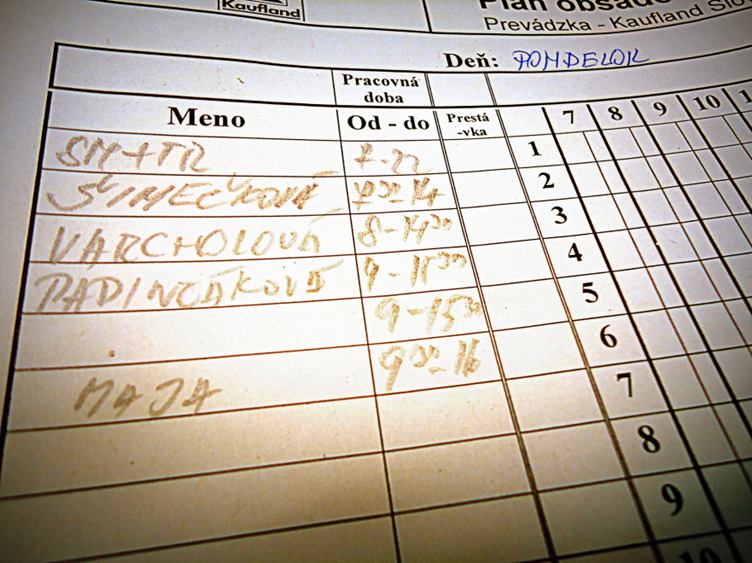 Kaufland
Plán obsade
Prevádzka - Kaufland Slo
Deň: PONDELOK
Meno
Pracovná doba
Od - do
Prestá -vka
7 8 9 10 1
SM+TR 7-22 1
ŠIMEČKOVÁ 7³⁰-14 2
VARCHOLOVÁ 8-14³⁰ 3
PADINČÁKOVÁ 9-15³⁰ 4
9-15³⁰ 5
9³⁰-16 6
MAJA 7
8
9
10